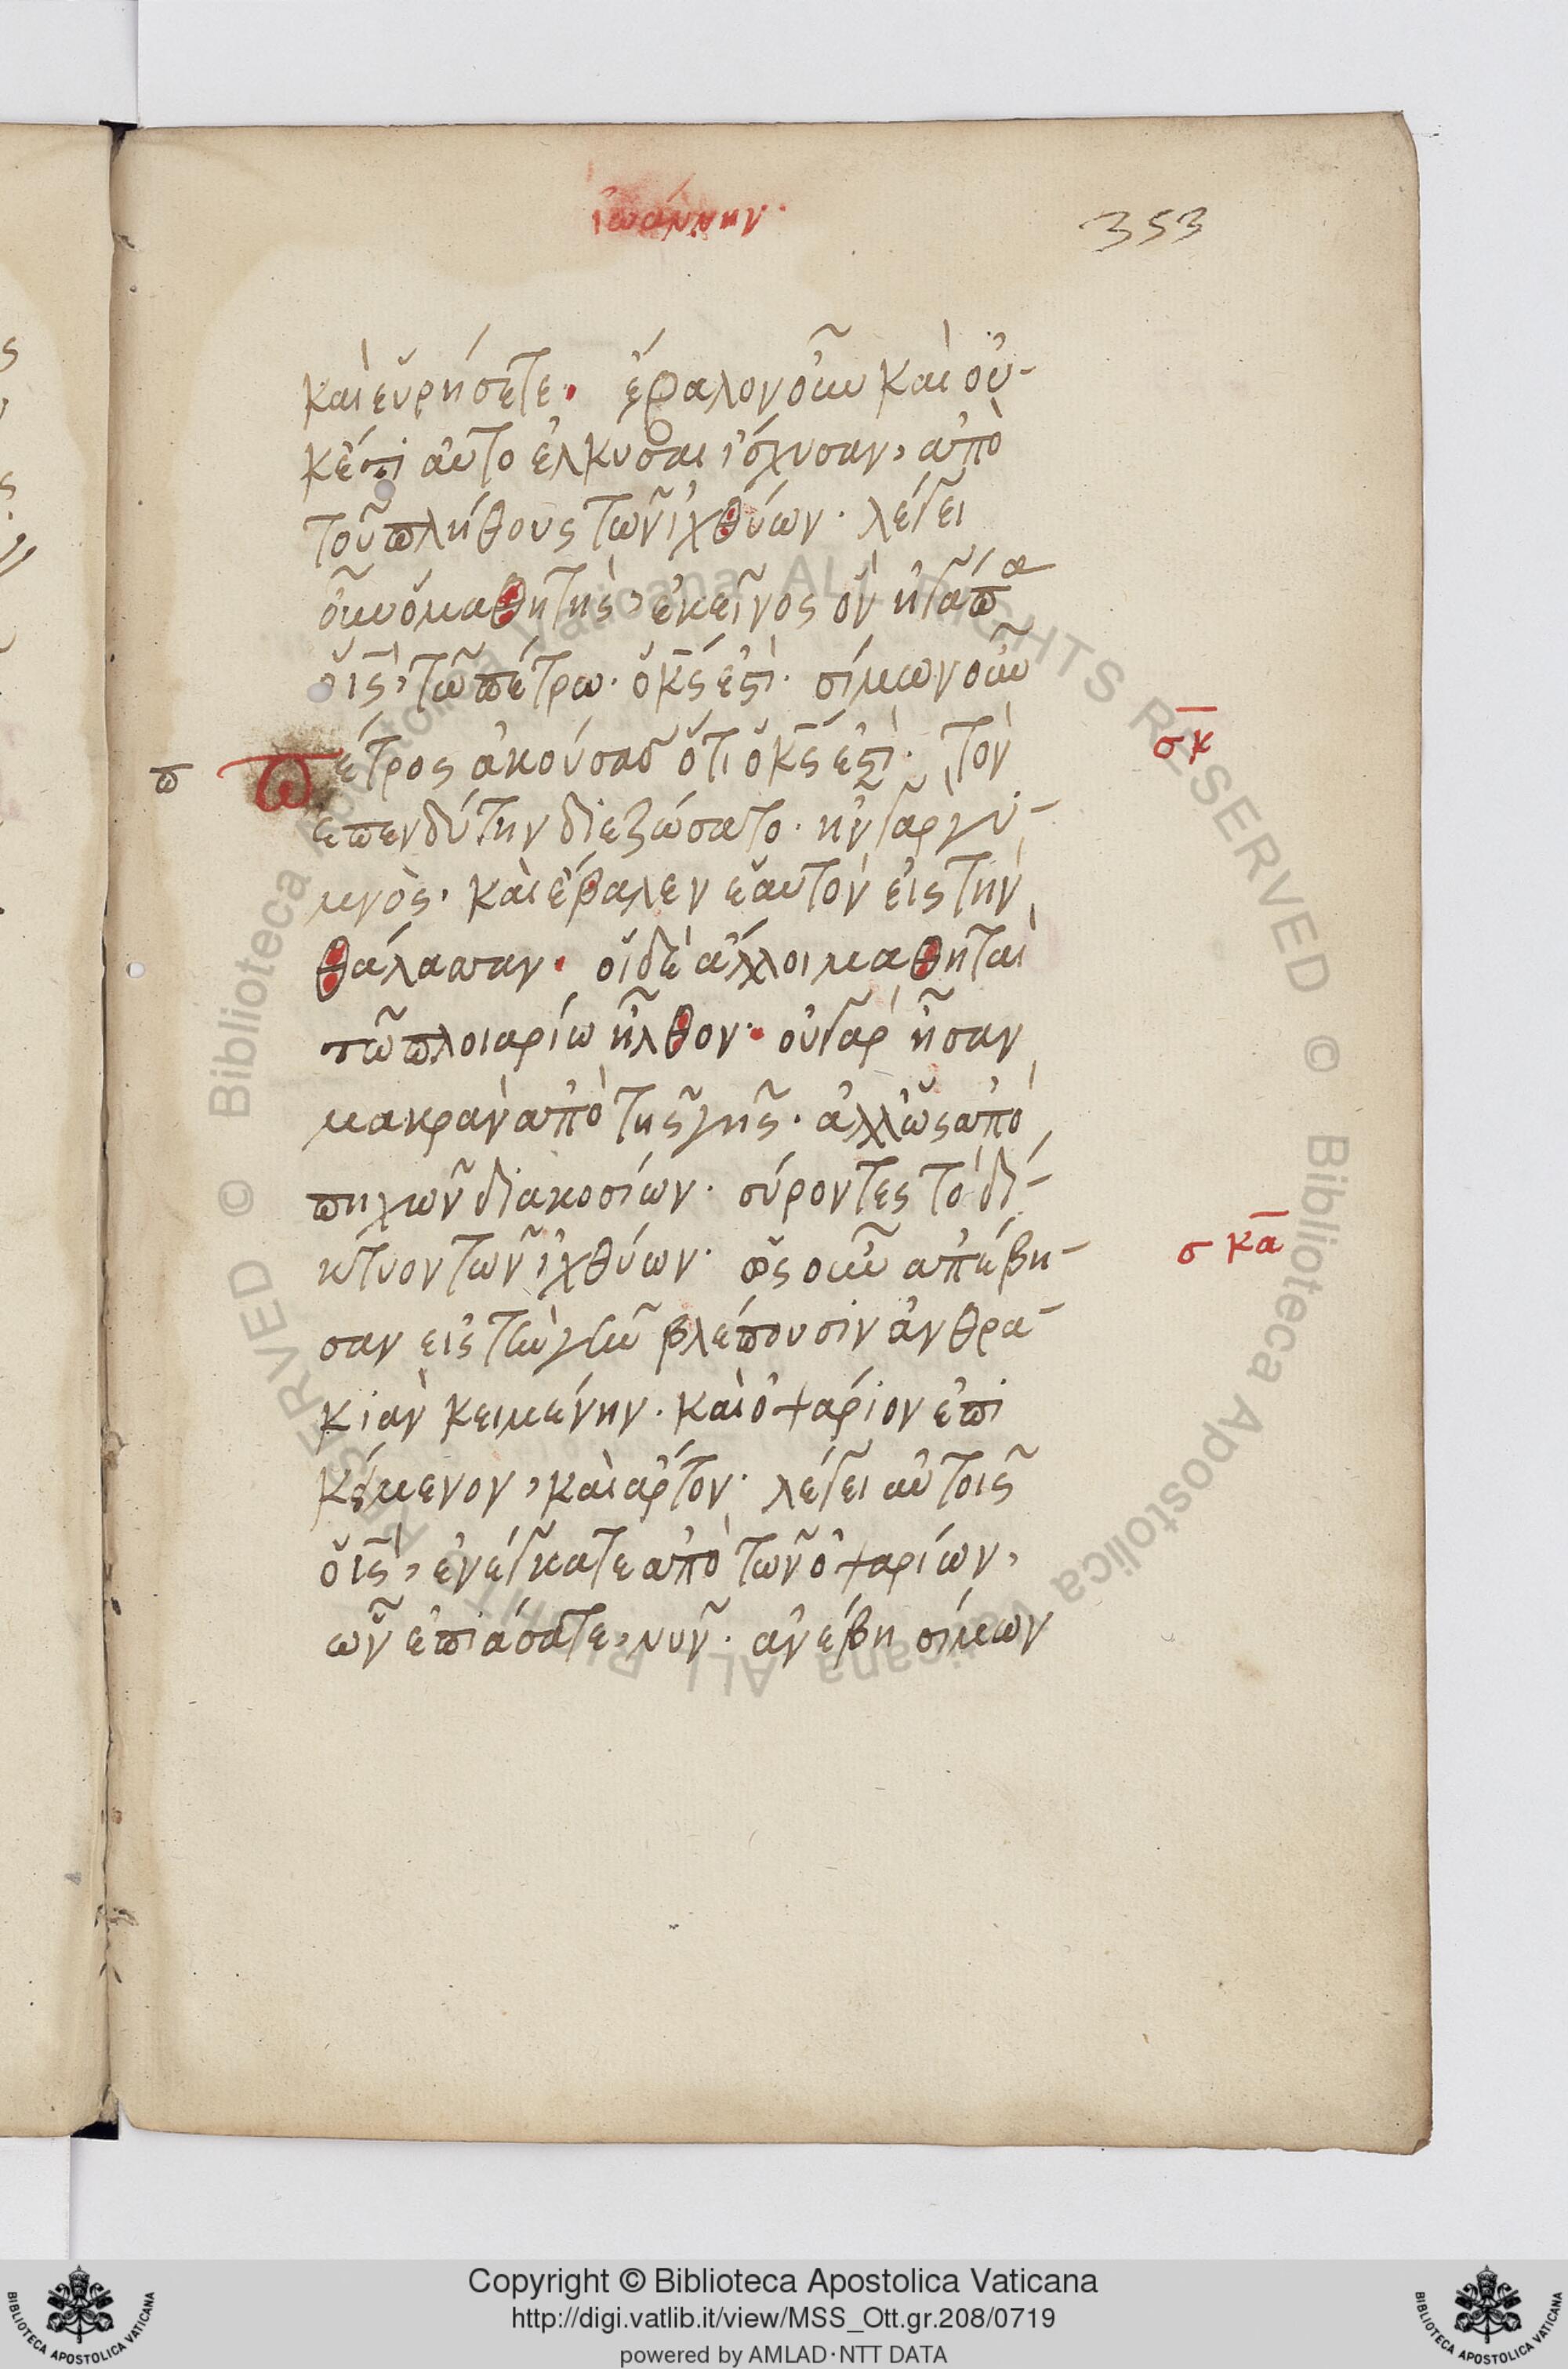 ἰωάννην·
353
καὶ εὑρήσετε· ἔβαλον οὖν καὶ οὐ-
κέτι αὐτὸ ἑλκύσαι ἴσχυσαν, ἀπὸ
τοῦ πλήθους τῶν ἰχθύων· λέγει
οὖν ὁ μαθητὴς, ἐκεῖνος ὃν ἠγάπα
ὁ ις̅, τῶ πέτρω· ὁ κς̅ ἐστὶ· σίμων οὖν
πέτρος ἀκούσας ὅτι ὁ κς̅ ἐστὶ· τὸν
σκ
π
ἐπενδύτην διεζώσατο· ἦν γὰρ γυ-
μνὸς· καὶ ἔβαλεν ἑαυτὸν εἰς τὴν
θάλασσαν· οἱ δὲ ἄλλοι μαθηταὶ
τῶ πλοιαρίω ἦλθον· οὐ γὰρ ἦσαν
μακρὰν ἀπὸ τῆς γῆς· ἀλλ' ὡς ἀπὸ
πηχῶν διακοσίων· σύροντες τὸ δί-
κτυον τῶν ἰχθύων· ὡς οὖν ἀπέβη-
σκα
σαν εἰς τὴν γῆν βλέπουσιν ἀνθρα-
κιὰν κειμένην· καὶ ὀψάριον ἐπι
κείμενον, καὶ ἄρτον· λέγει αὐτοῖς
ὁ ις̅, ἐνέγκατε ἀπὸ τῶν ὀψαρίων,
ὧν ἐπιάσατε, νῦν· ἀνέβη σίμων
Copyright © Biblioteca Apostolica Vaticana
http://digi.vatlib.it/view/MSS_Ott.gr.208/0719
powered by AMLAD·NTT DATA
BIBLIOTECA APOSTOLICA VATICANA
BIBLIOTECA APOSTOLICA VATICANA
© Biblioteca Apostolica Vaticana ALL RIGHTS RESERVED
© Biblioteca Apostolica Vaticana ALL RIGHTS RESERVED